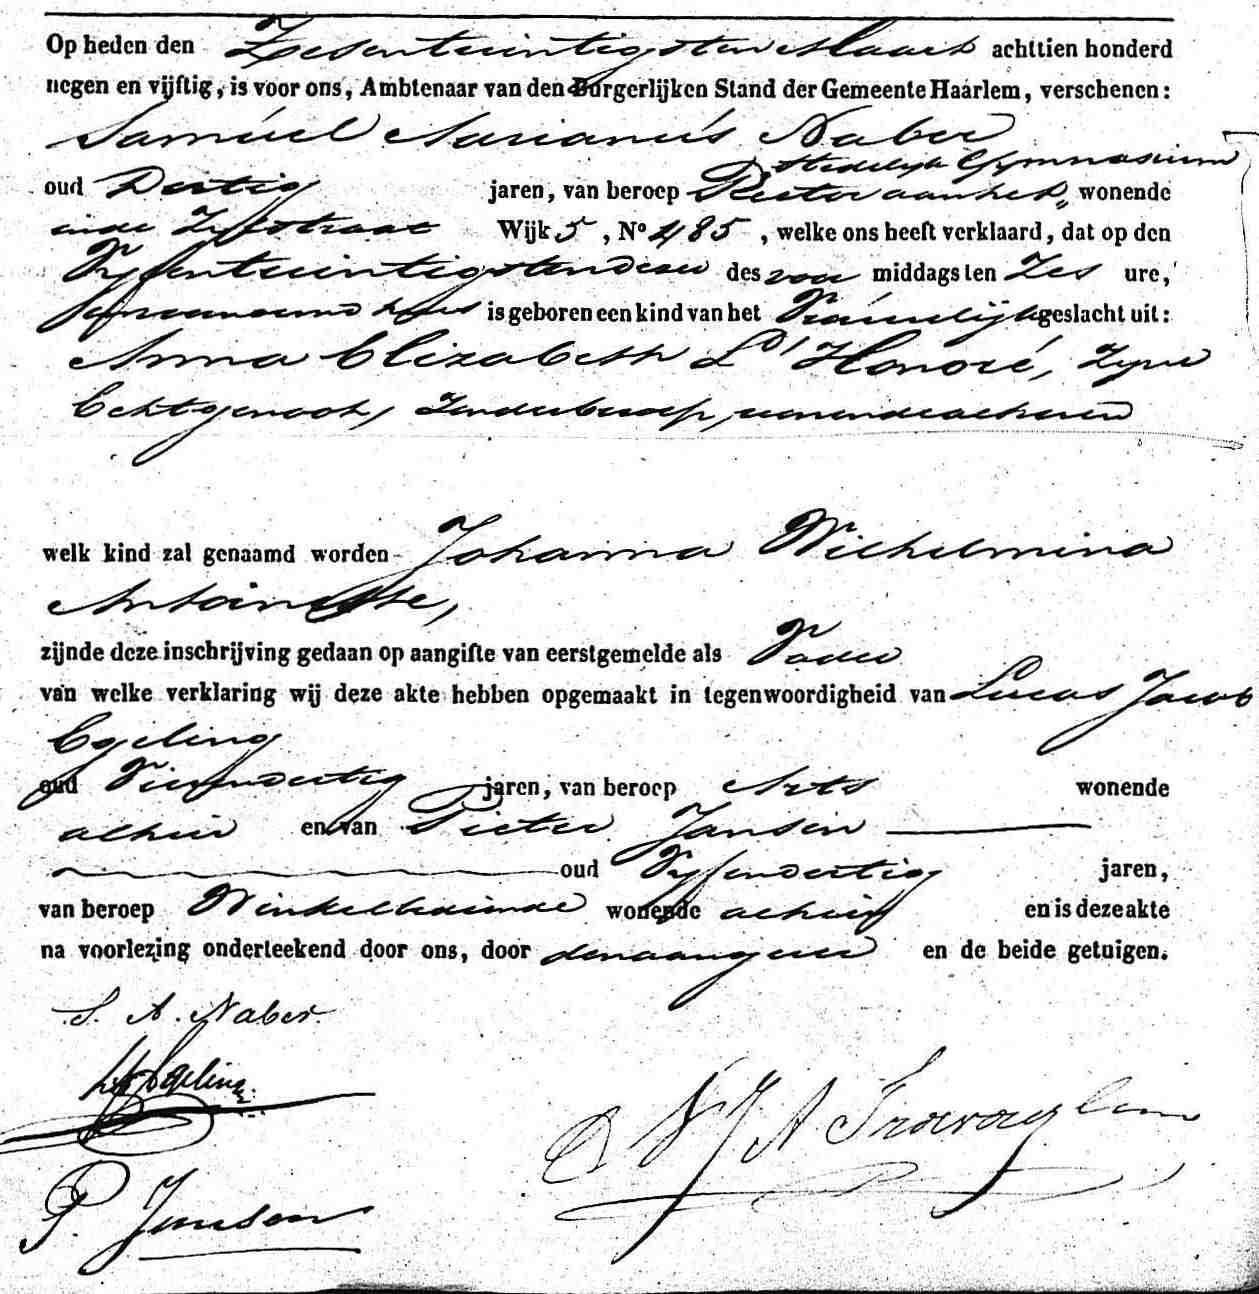 Op heden den Zesentwintigsten Maart achttien honderd
negen en vijftig, is voor ons, Ambtenaar van den Burgerlijken Stand der Gemeente Haarlem, verschenen:
Samuel Adrianus Naber
stedelijk Gymnasium
oud Dertig jaren, van beroep Rector aan het, wonende
in de Zijlstraat Wijk 5, No 485, welke ons heeft verklaard, dat op den
Vijfentwintigsten dezer des voor middags ten Zes ure,
is geboren een kind van het Vrouwelijk geslacht uit:
Anna Elizabeth L'Honoré, Zijne
Echtgenoot, zonder beroep, wonende alhier
welk kind zal genaamd worden Johanna Wilhelmina
Antoinette,
zijnde deze inschrijving gedaan op aangifte van eerstgemelde als Vader
van welke verklaring wij deze akte hebben opgemaakt in tegenwoordigheid van Lucas Jacob
Egeling
oud Vierendertig jaren, van beroep Arts wonende
alhier en van Pieter Jansen
oud Vijfendertig jaren,
van beroep Winkelbediende wonende alhier en is deze akte
na voorlezing onderteekend door ons, door den aangever en de beide getuigen.
S. A. Naber.
Egeling
P. Jansen